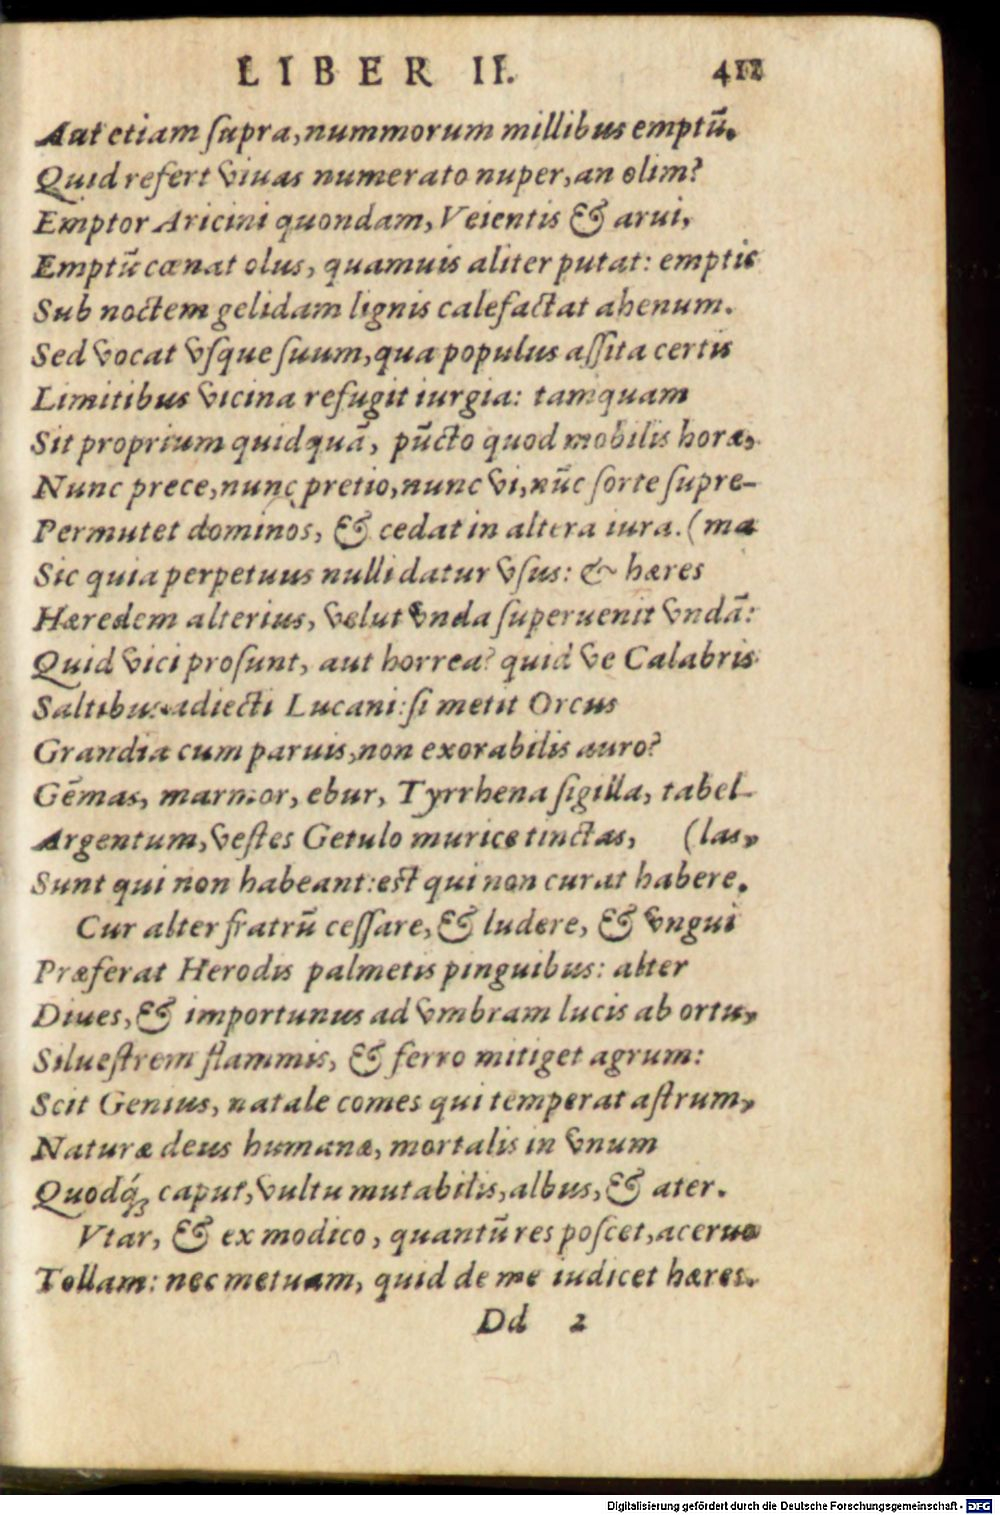 LIBER II. 412
Aut etiam ſupra, nummorum millibus emptũ.
Quid refert viuas numerato nuper, an olim?
Emptor Aricini quondam, Veientis & arui,
Emptũ cœnat olus, quamuis aliter putat: emptis
Sub noctem gelidam lignis calefactat ahenum.
Sed vocat vſque ſuum, qua populus aſſita certis
Limitibus vicina refugit iurgia: tamquam
Sit proprium quidquã, pũcto quod mobilis horæ,
Nunc prece, nunc pretio, nunc vi, nũc ſorte ſupre-
Permutet dominos, & cedat in altera iura. (ma
Sic quia perpetuus nulli datur vſus: & hæres
Hæredem alterius, velut vnda ſuperuenit vndã:
Quid vici proſunt, aut horrea? quid ve Calabris
Saltibus adiecti Lucani: ſi metit Orcus
Grandia cum paruis, non exorabilis auro?
Gẽmas, marmor, ebur, Tyrrhena ſigilla, tabel-
Argentum, veſtes Getulo murice tinctas, (las,
Sunt qui non habeant: eſt qui non curat habere.
Cur alter fratrũ ceſſare, & ludere, & vngui
Præferat Herodis palmetis pinguibus: alter
Diues, & importunus ad vmbram lucis ab ortu,
Silueſtrem flammis, & ferro mitiget agrum:
Scit Genius, natale comes qui temperat aſtrum,
Naturæ deus humanæ, mortalis in vnum
Quodq́; caput, vultu mutabilis, albus, & ater.
Vtar, & ex modico, quantũ res poſcet, aceruo
Tollam: nec metuam, quid de me iudicet hæres.
Dd 2
Digitalisierung gefördert durch die Deutsche Forschungsgemeinschaft - DFG